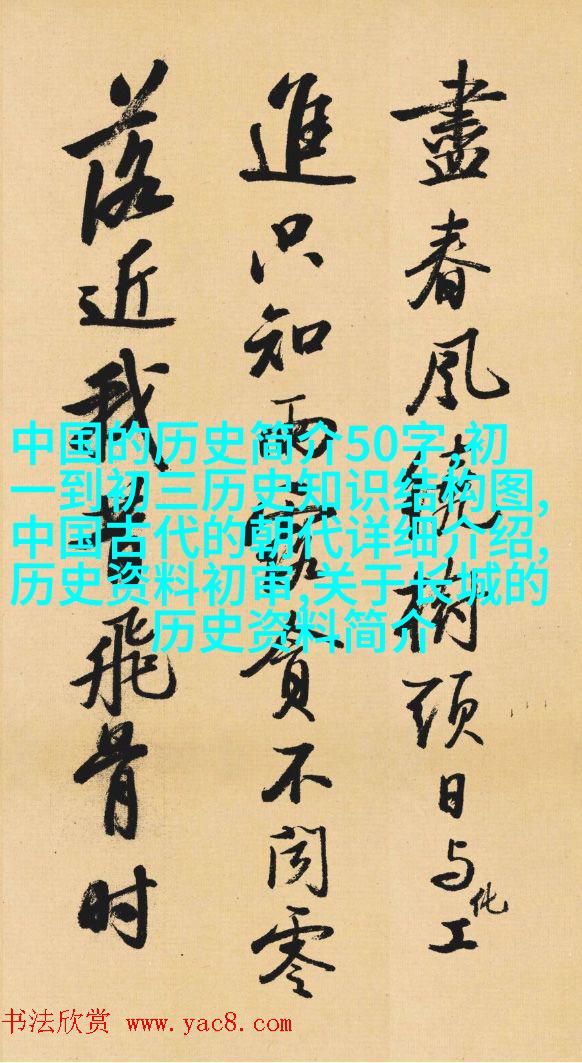 盡春風繞樹頭日与化工
進只知雨露貪不聞零
落近我昔飛骨时
中国的历史简介50字,初
一到初三历史知识结构图,
中国古代的朝代详细介绍,
历史资料初审,关于长城的
历史资料简介
书法欣赏 www.yac8.com